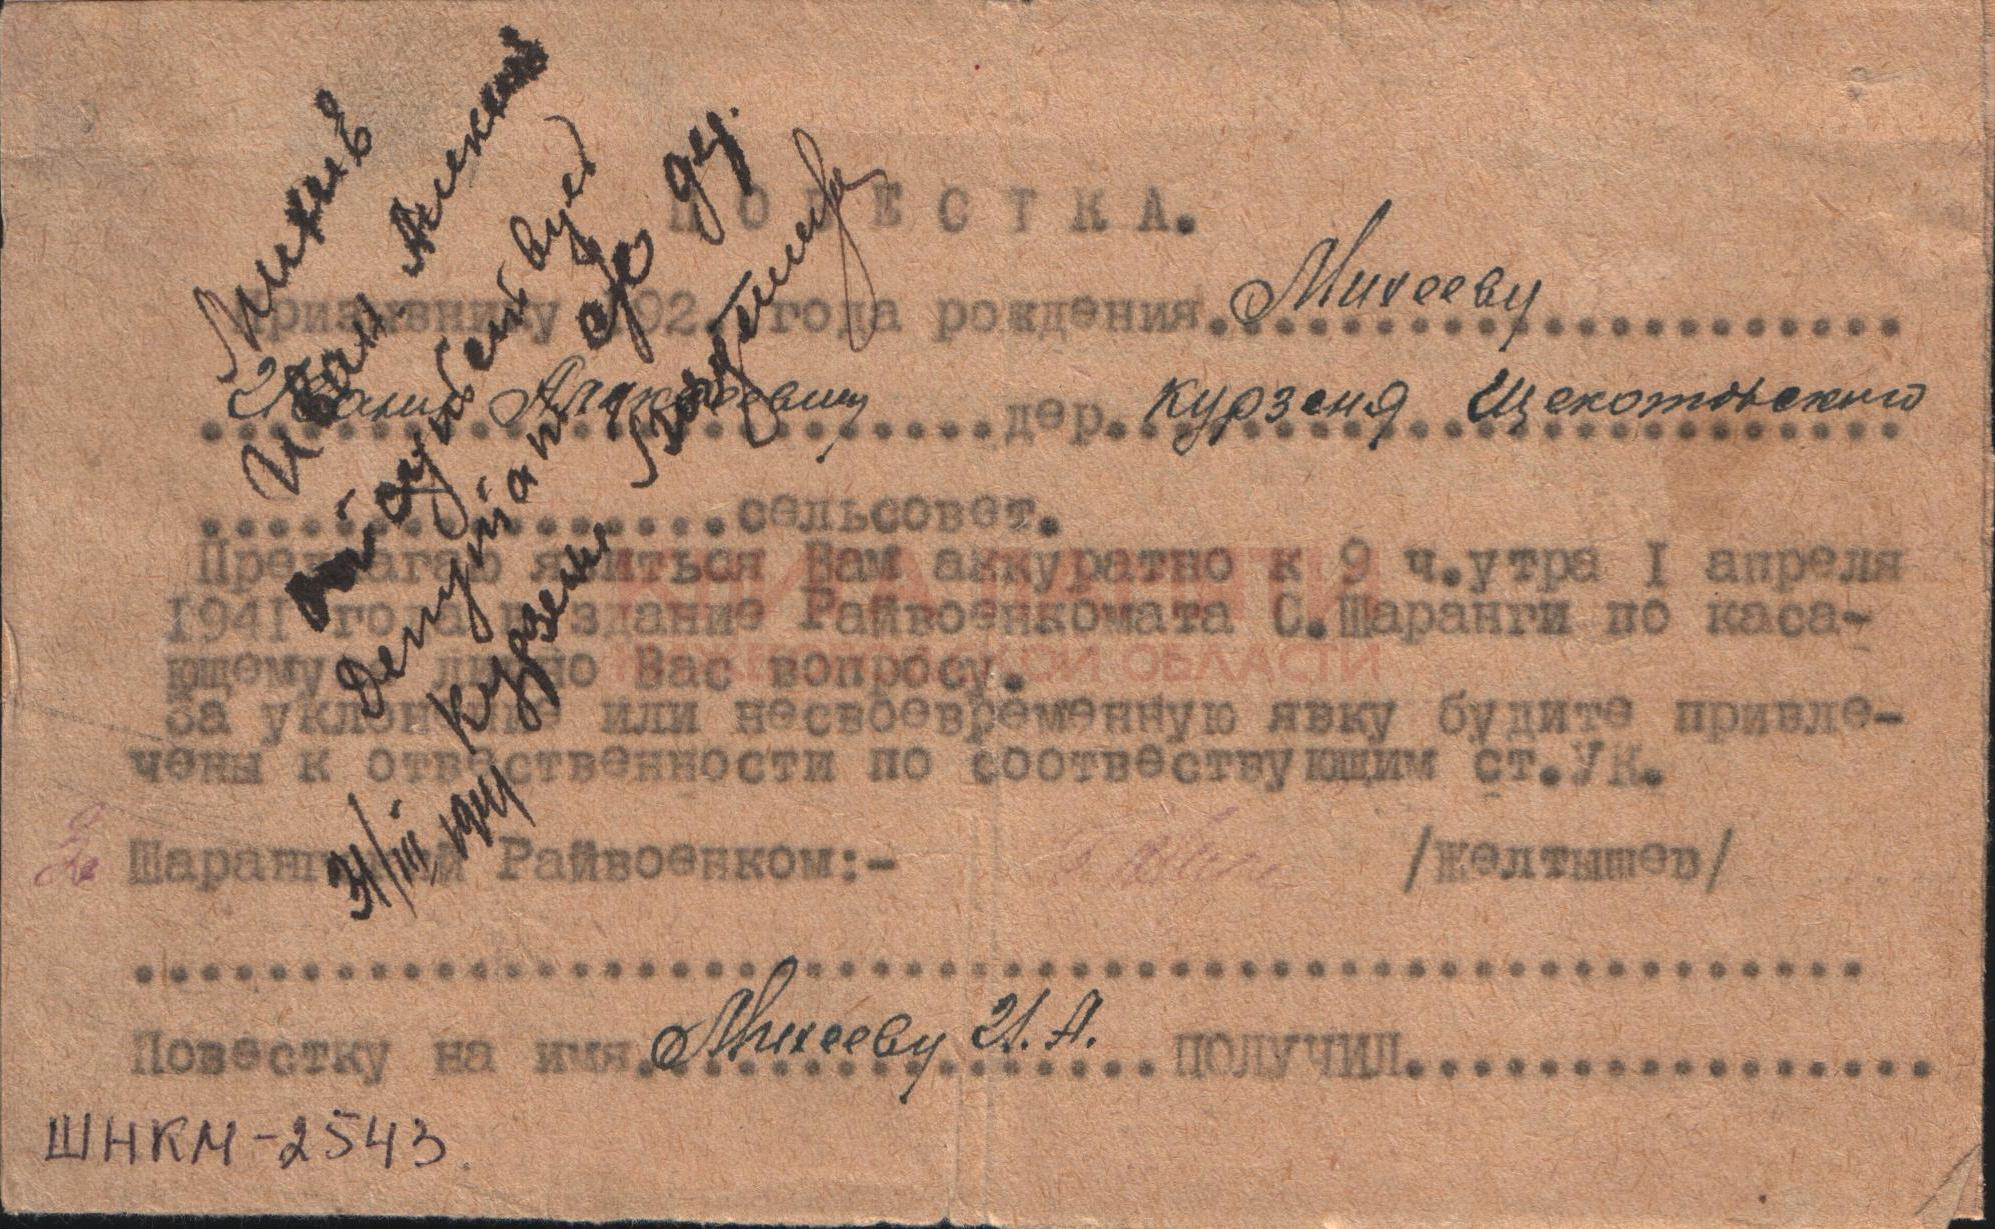 ПОВЕСТКА.
Призывнику 192 года рождения Михееву
Ивану Алексеевичу дер. Курзеня Щекотовского
сельсовет.
Предлагаю явиться Вам аккуратно к 9 ч.утра I апреля
1941 года в здание Райвоенкомата С.Шаранги по каса-
ющему лично Вас вопросу.
За уклонение или несвоевременную явку будите привле-
чены к отвественности по соотвествующим ст.УК.
Шарангский Райвоенком:- /Желтышев/
Повестку на имя Михееву И.А. ПОЛУЧИЛ
ШНКМ-2543
Михеев
Иван Алексеев
отсутствует
Депутат дер.
Курзени
31/III 1941
КНИГА ПАМЯТИ
НИЖЕГОРОДСКОЙ ОБЛАСТИ